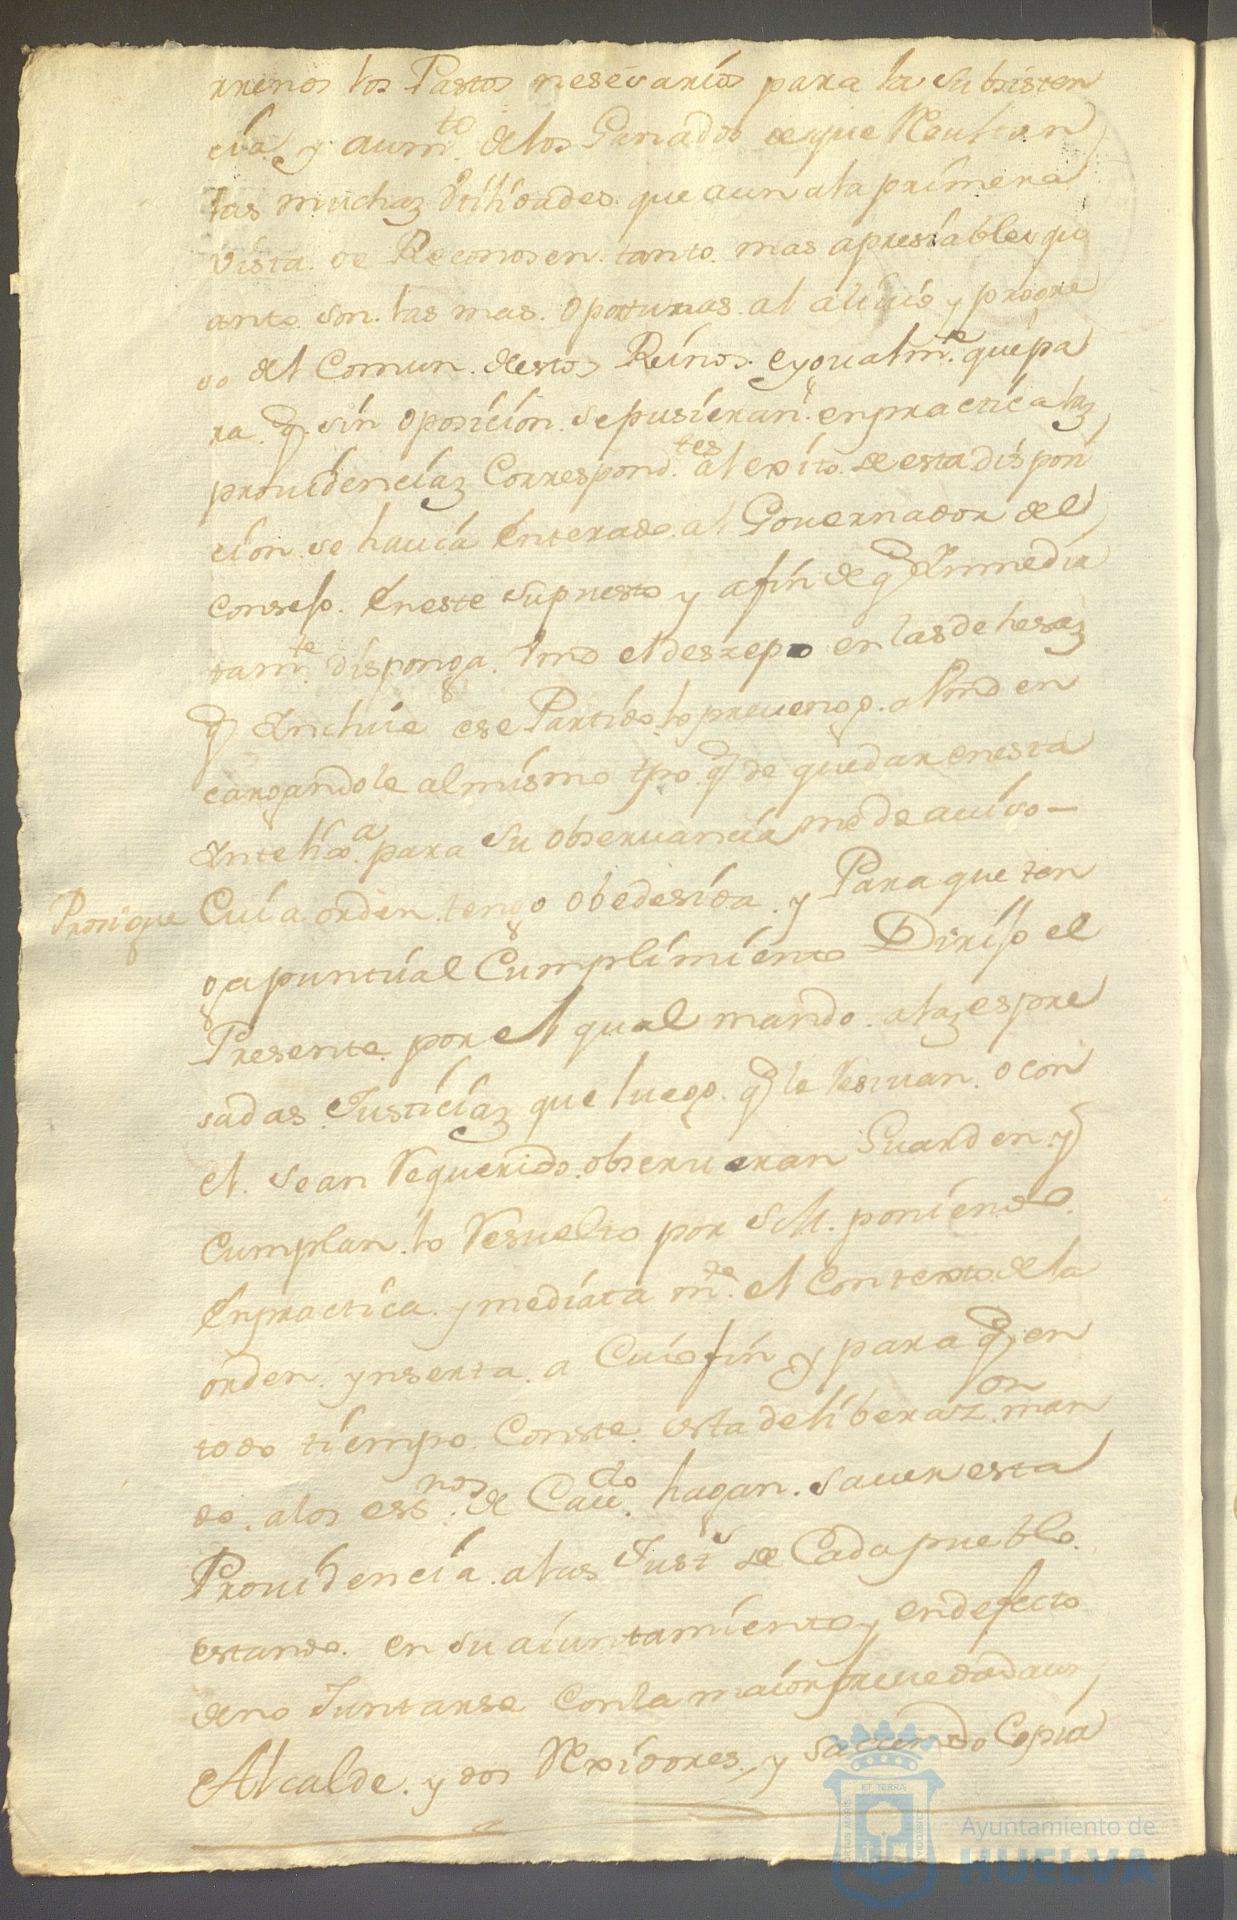 rrenos los Pastos nesesarios para la Subsisten
cia y aumto. delos Ganados de que Resultan
las muchas Utilidades que aun ala primera
vista se Reconosen tanto mas apresiables qu
anto son las mas oportunas al alivio y progre
so del Comun destos Reinos. eygualmte. que pa
ra q. sin oposicion se pusieran enpractica las
providencias Correspondtes. al exito de esta disposi
cion se havia Enterado al Governador del
Consejo. Eneste Supuesto y afin de q Inmedia
tamte. disponga el desrepo en las dehesas
q Incluie ese Partido lo prevengo a en
cargandole almismo tpo. q de quedar enesta
Inteliga. para Su observancia me de aviso —
Prosigue Cuia orden tengo obedesida y Para que ten
ga puntual Cumplimiento Dirijo el
Presente por el qual mando alas espre
sadas Justicias que luego q le Resivan o con
el Sean Requerido observaran Guarden y
Cumplan lo Resuelto por S.M. poniendo
Enpractica ymediata mte. el Contexto de la
orden ynserta a Cuio fin y para q en
todo tiempo Conste esta deliberazon. man
do alos essnos. de Cavdo. hagan Saver esta
Providencia alas Justs de Cada pueblo
estando en Su aiuntamiento y endefecto
deno Juntarse Conla maior brevedad aun
Alcalde y dos Rexidores, y Sacando Copia
ET TERRA
Ayuntamiento de
HUELVA